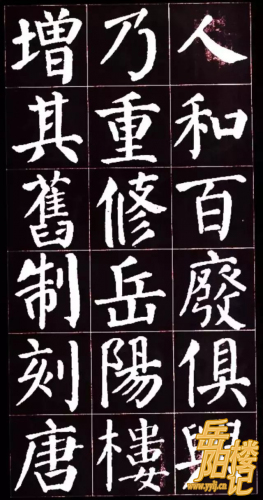 人和百廢俱興
乃重修岳陽樓
增其舊制刻唐
岳阳楼记
www.yylj.cn